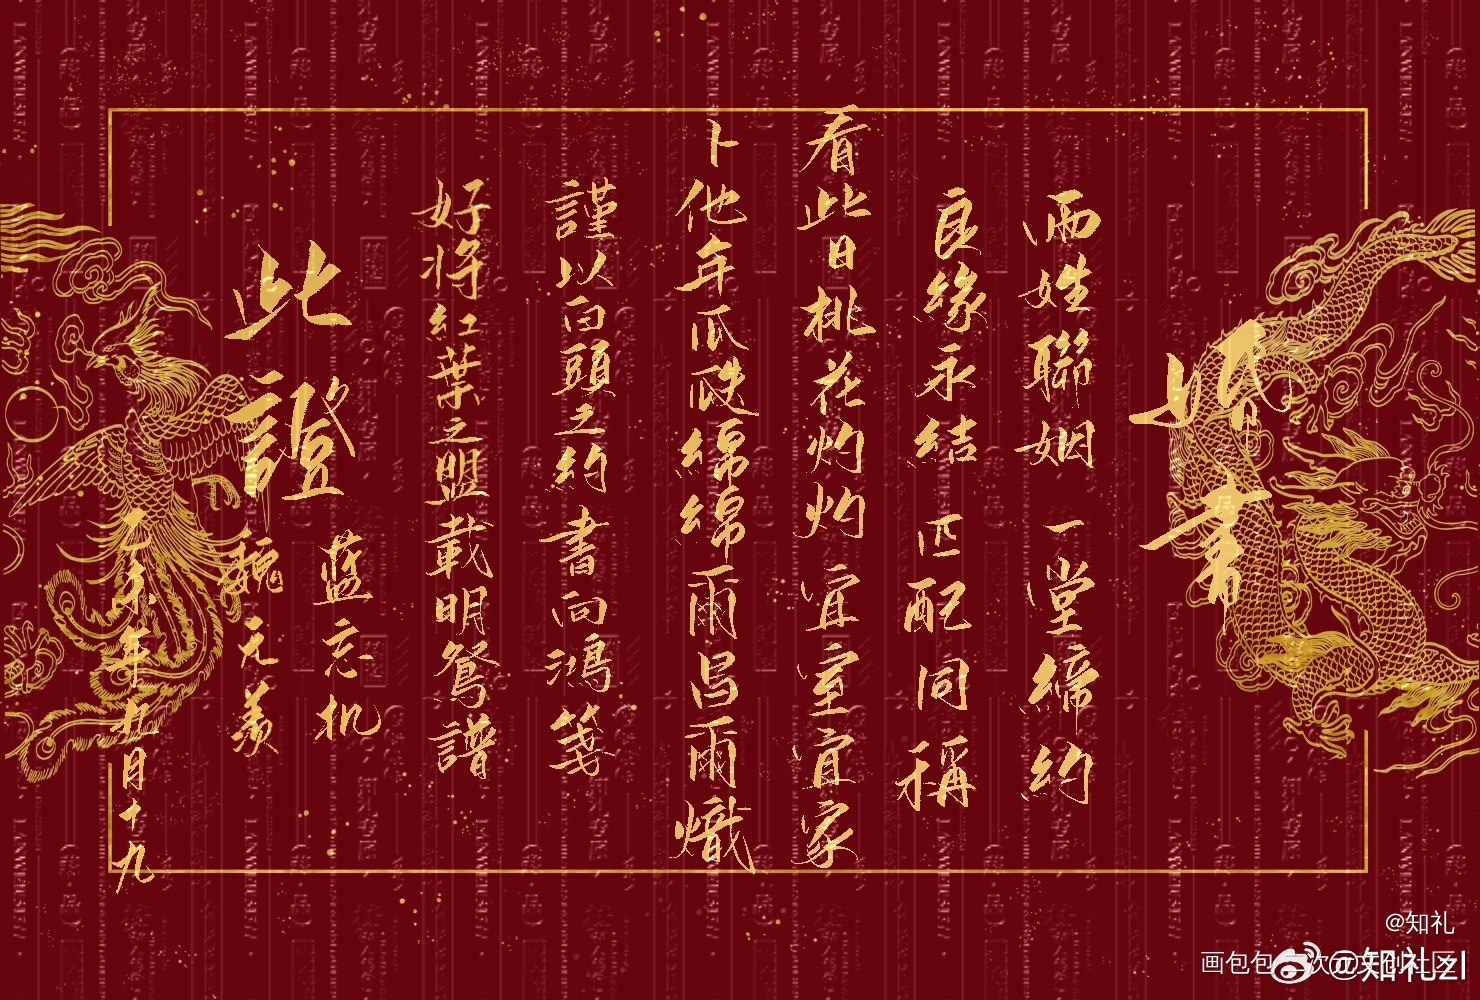 婚書
兩姓聯姻 一堂締約
良緣永結 匹配同稱
看此日桃花灼灼 宜室宜家
卜他年瓜瓞綿綿 爾昌爾熾
謹以白頭之約 書向鴻箋
好將紅葉之盟 載明鴛譜
此證
蓝忘机
魏无羡
年九月十九
@知礼
画包包
@知礼zl